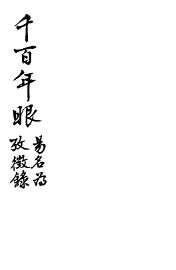 千百年眼
易名為
攷徵錄